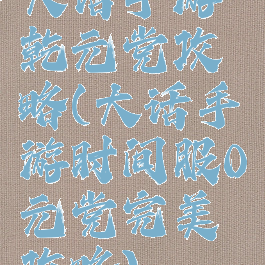 大话手游
乾元党攻
略(大话手
游时间服0
元党完美
攻略)